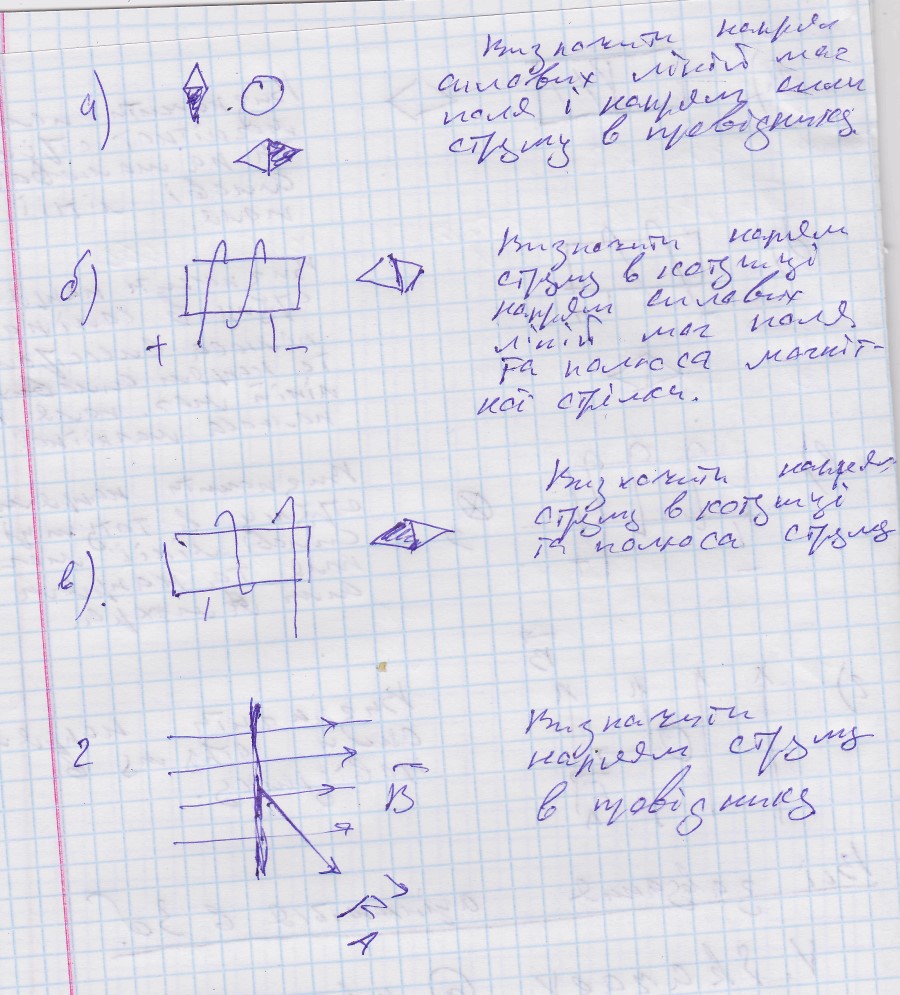 а)
Визначити напрям
силових ліній маг
поля і напрям сили
струму в провіднику.
б)
+ −
Визначити напрям
струму в котушці
напрям силових
ліній маг поля
та полюса магніт-
ної стрілки.
в).
Визначити напрям
струму в котушці
та полюса струму
2
B
F
A
Визначити
напрям струму
в провіднику